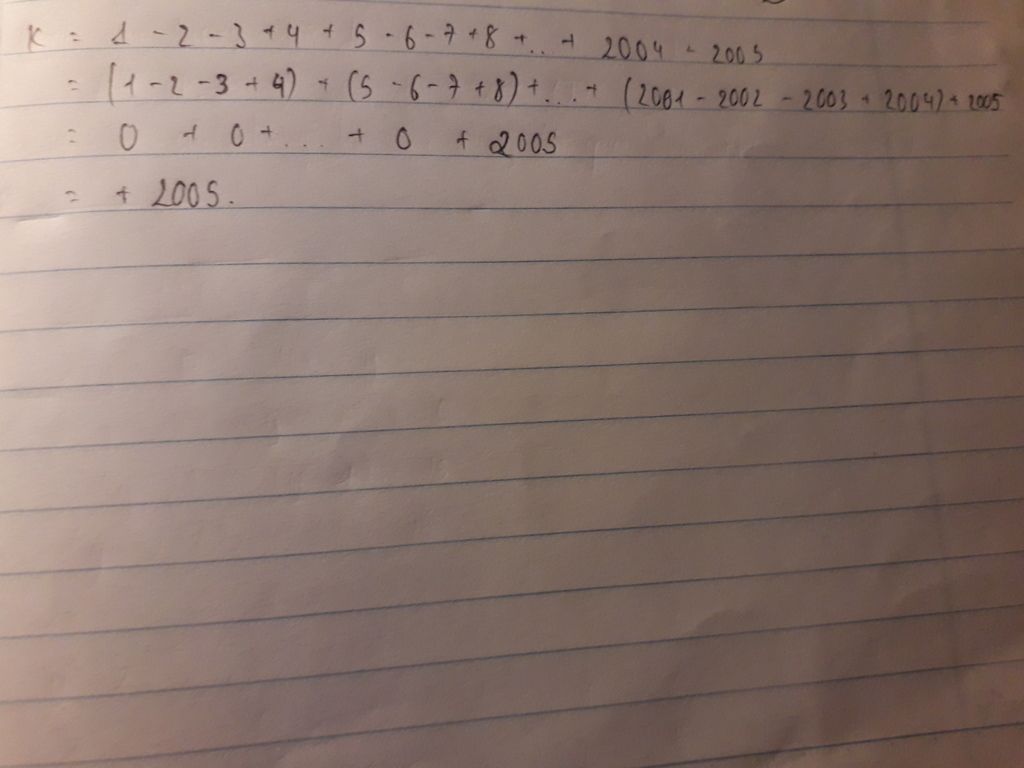 K = 1 - 2 - 3 + 4 + 5 - 6 - 7 + 8 + ... + 2004 - 2005
= (1 - 2 - 3 + 4) + (5 - 6 - 7 + 8) + ... + (2001 - 2002 - 2003 + 2004) + 2005
= 0 + 0 + ... + 0 + 2005
= + 2005.